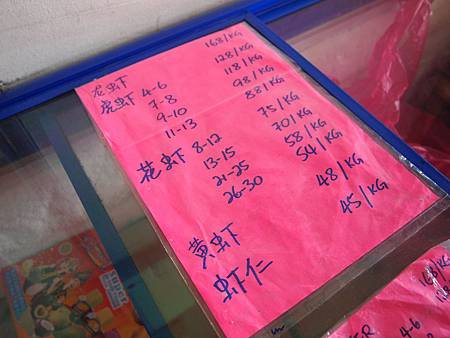 龙虾 168/KG
虎虾 4-6 128/KG
7-8 118/KG
9-10 98/KG
11-13 88/KG
花虾 8-12 75/KG
13-15 70/KG
21-25 58/KG
26-30 54/KG
黄虾 48/KG
虾仁 45/KG
super
168/KG
128
4-6